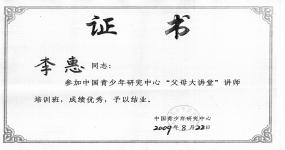 证 书
李惠 同志：
参加中国青少年研究中心“父母大讲堂”讲师
培训班，成绩优秀，予以结业。
中国青少年研究中心
2009年8月23日